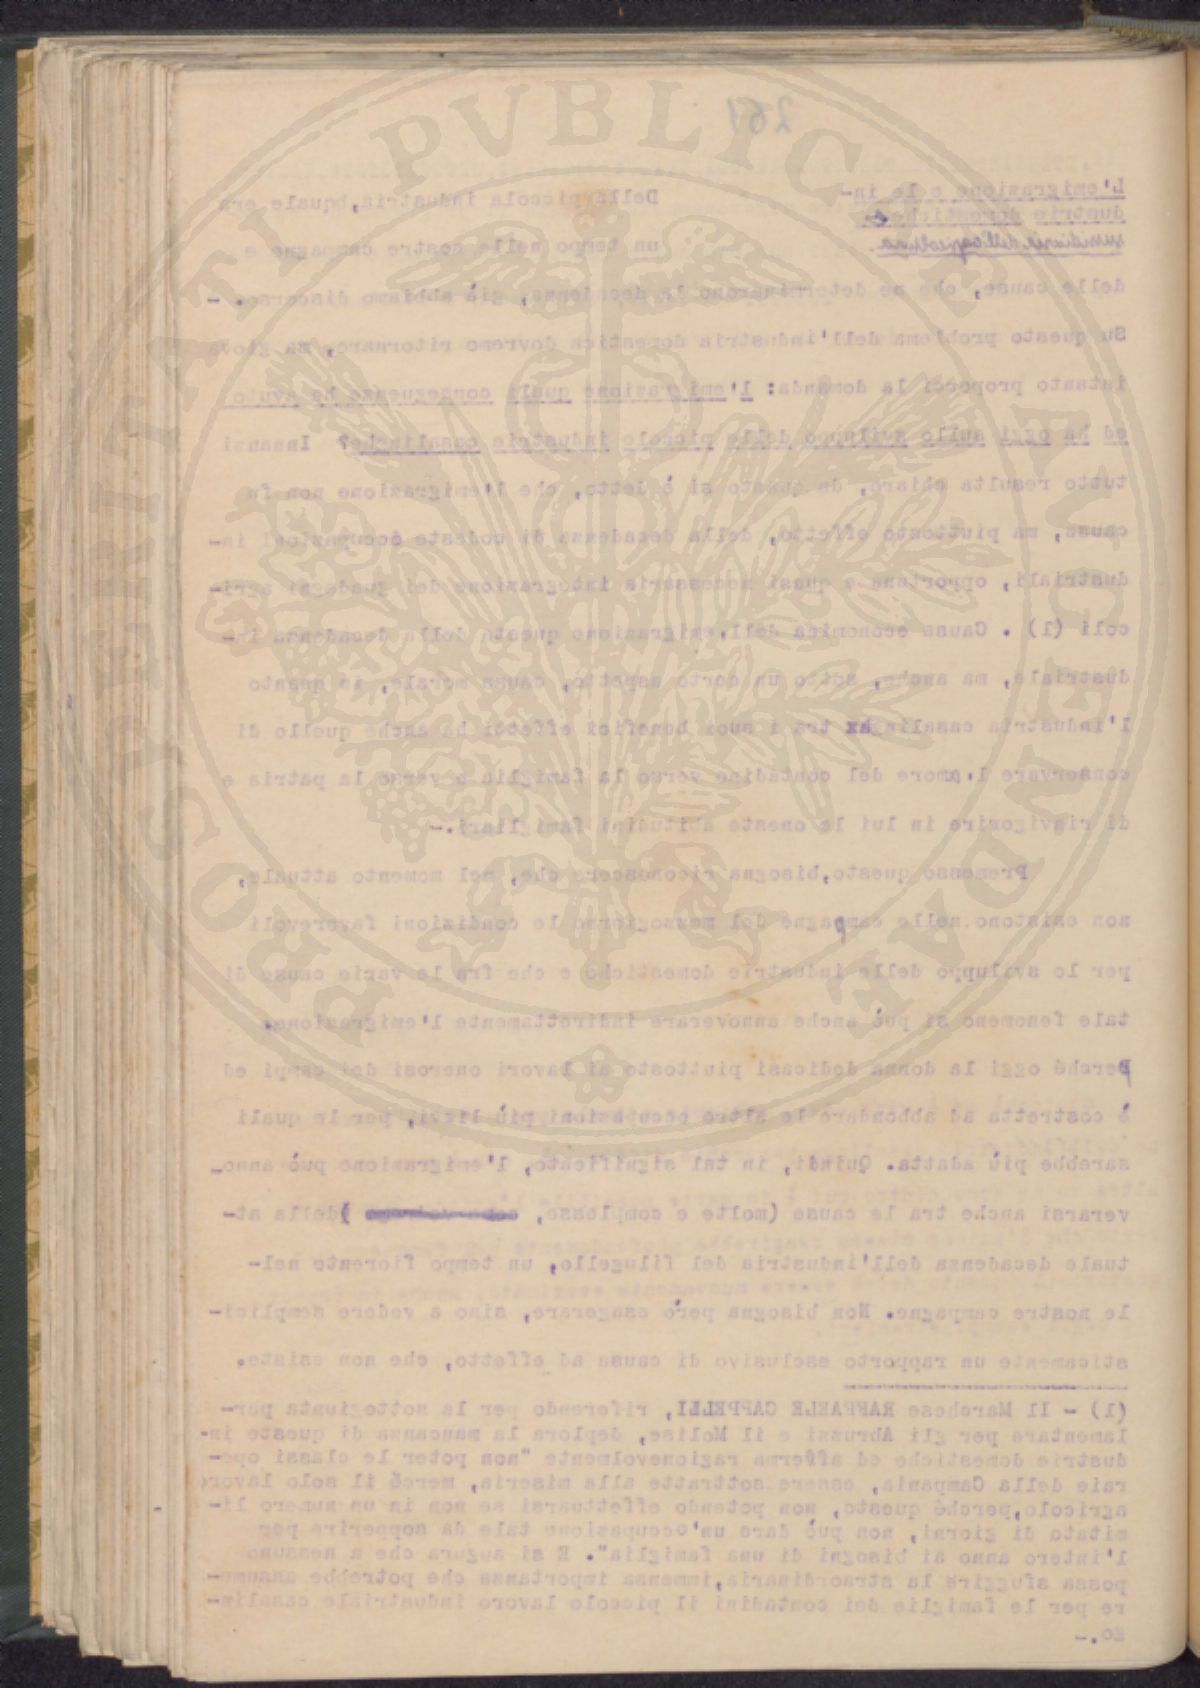 261
L'emigrazione e le in-
dustrie domestiche e
sussidiarie dell'agricoltura.
Della piccola industria, quale era
un tempo nelle nostre campagne e
delle cause, che ne determinarono la decadenza, già abbiamo discorso. -
Su questo problema dell'industria domestica dovremo ritornare, ma giova
intanto proporci la domanda: l'emigrazione quali conseguenze ha avuto
ed ha oggi sullo sviluppo delle piccole industrie casalinghe? Innanzi
tutto resulta chiaro, da quanto si è detto, che l'emigrazione non fu
causa, ma piuttosto effetto, della decadenza di codeste occupazioni in-
dustriali, opportune e quasi necessaria integrazione dei guadagni agri-
coli (1) . Causa economica dell'emigrazione questa della decadenza in-
dustriale, ma anche, sotto un certo aspetto, causa morale, in quanto
l'industria casalinga tra i suoi benefici effetti ha anche quello di
conservare l'amore del contadine verso la famiglia e verso la patria e
di rinvigorire in lui le oneste abitudini famigliari.-
Premesso questo, bisogna riconoscere che, nel momento attuale,
non esistono nelle campagne del mezzogiorno le condizioni favorevoli
per lo sviluppo delle industrie domestiche e che fra le varie cause di
tale fenomeno si può anche annoverare indirettamente l'emigrazione,
perché oggi la donna dedicasi piuttosto ai lavori onerosi dei campi ed
è costretta ad abbondare le altre occupazioni più lievi, per le quali
sarebbe più adatta. Quindi, in tal significato, l'emigrazione può anno-
verarsi anche tra le cause (molte e complesse, ) della at-
tuale decadenza dell'industria del filugello, un tempo fiorente nel-
le nostre campagne. Non bisogna però esagerare, sino a vedere semplici-
sticamente un rapporto esclusivo di causa ad effetto, che non esiste.
(1) - Il Marchese RAFFAELE CAPPELLI, riferendo per la sottogiunta par-
lamentare per gli Abruzzi e il Molise, deplora la mancanza di queste in-
dustrie domestiche ed afferma ragionevolmente "non poter le classi ope-
raie della Campania, essere sottratte alla miseria, mercé il solo lavoro
agricolo, perché questo, non potendo effettuarsi se non in un numero li-
mitato di giorni, non può dare un'occupazione tale da sopperire per
l'intero anno ai bisogni di una famiglia". E si augura che a nessuno
possa sfuggire la straordinaria, immensa importanza che potrebbe assume-
re per le famiglie dei contadini il piccolo lavoro industriale casalin-
go.-
PROSPERITATI PVBLICAE AVGENDAE